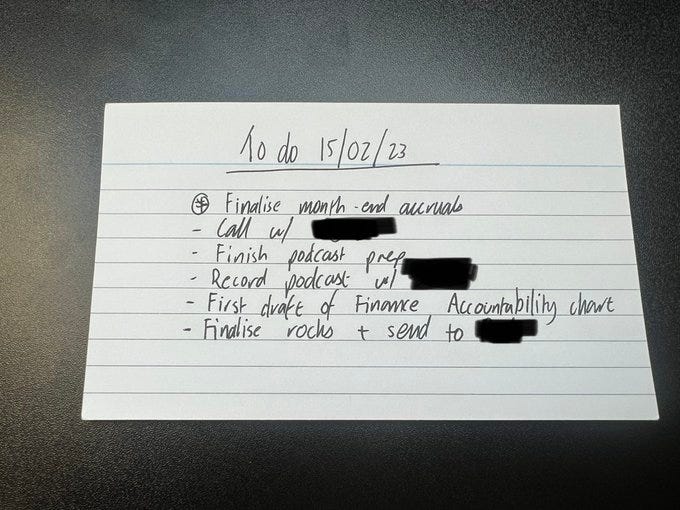 To do 15/02/23
⊛ Finalise month-end accruals
- Call w/
- Finish podcast prep
- Record podcast w/
- First draft of Finance Accountability chart
- Finalise rocks + send to